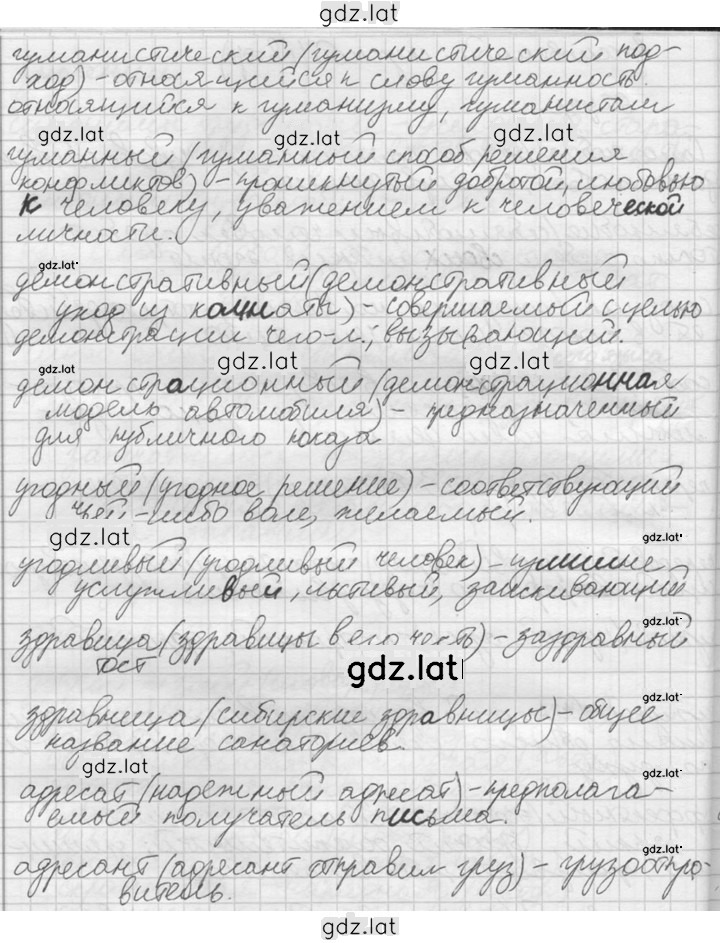 gdz.lat
гуманистический (гуманистический под-
ход) - относящийся к слову гуманность.
относящийся к гуманизму, гуманистам
gdz.lat gdz.lat gdz.lat
гуманный (гуманный способ решения
конфликтов) - проникнутый добротой, любовью
к человеку, уважением к человеческой
личности.
gdz.lat
демонстративный (демонстративный
уход из комнаты) - совершаемый с целью
демонстрации чего-л.; вызывающий.
gdz.lat gdz.lat gdz.lat
демонстрационный (демонстрационная
модель автомобиля) - предназначенный
для публичного показа
угодный (угодное решение) - соответствующий
чьей-либо воле, желаемый.
gdz.lat gdz.lat
угодливый (угодливый человек) - излишне
услужливый, льстивый, заискивающий
gdz.lat
здравица (здравицы в его честь) - заздравный
тост
gdz.lat
gdz.lat
здравница (сибирские здравницы) - общее
название санаториев.
gdz.lat gdz.lat
адресат (надежный адресат) - предполага-
емый получатель письма.
gdz.lat
адресант (адресант отправил груз) - грузоотпра-
витель.
gdz.lat